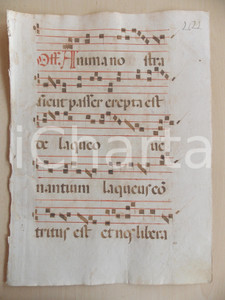 Off. Anima no stra
sicut passer erepta est
de laqueo ve
nantium laqueus cō
tritus est et nos libera
iCharta